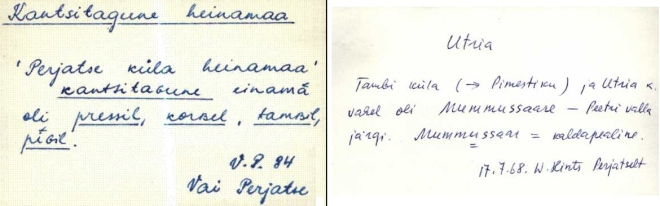 Kantsitagune heinamaa
'Perjatse küla heinamaa'
kantsitagune einamä
oli pressil, korsel, tamsil,
pisil.
V.P. 84
Vai Perjatse
Utria
Tambi küla (→ Pimestiku) ja Utria k.
vahel oli Mummussaare – Peetri valla
järgi. Mummussaar = valdapealine.
17.7.68. W. Hints Perjatselt